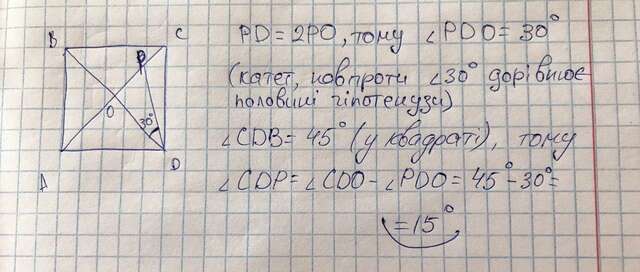 B
C
P
O
30°
A
D
PD=2PO, тому ∠PDO=30°
(катет, навпроти ∠30° дорівнює
половині гіпотенузи)
∠CDB=45° (у квадраті), тому
∠CDP=∠CDO-∠PDO=45°-30°=
=15°